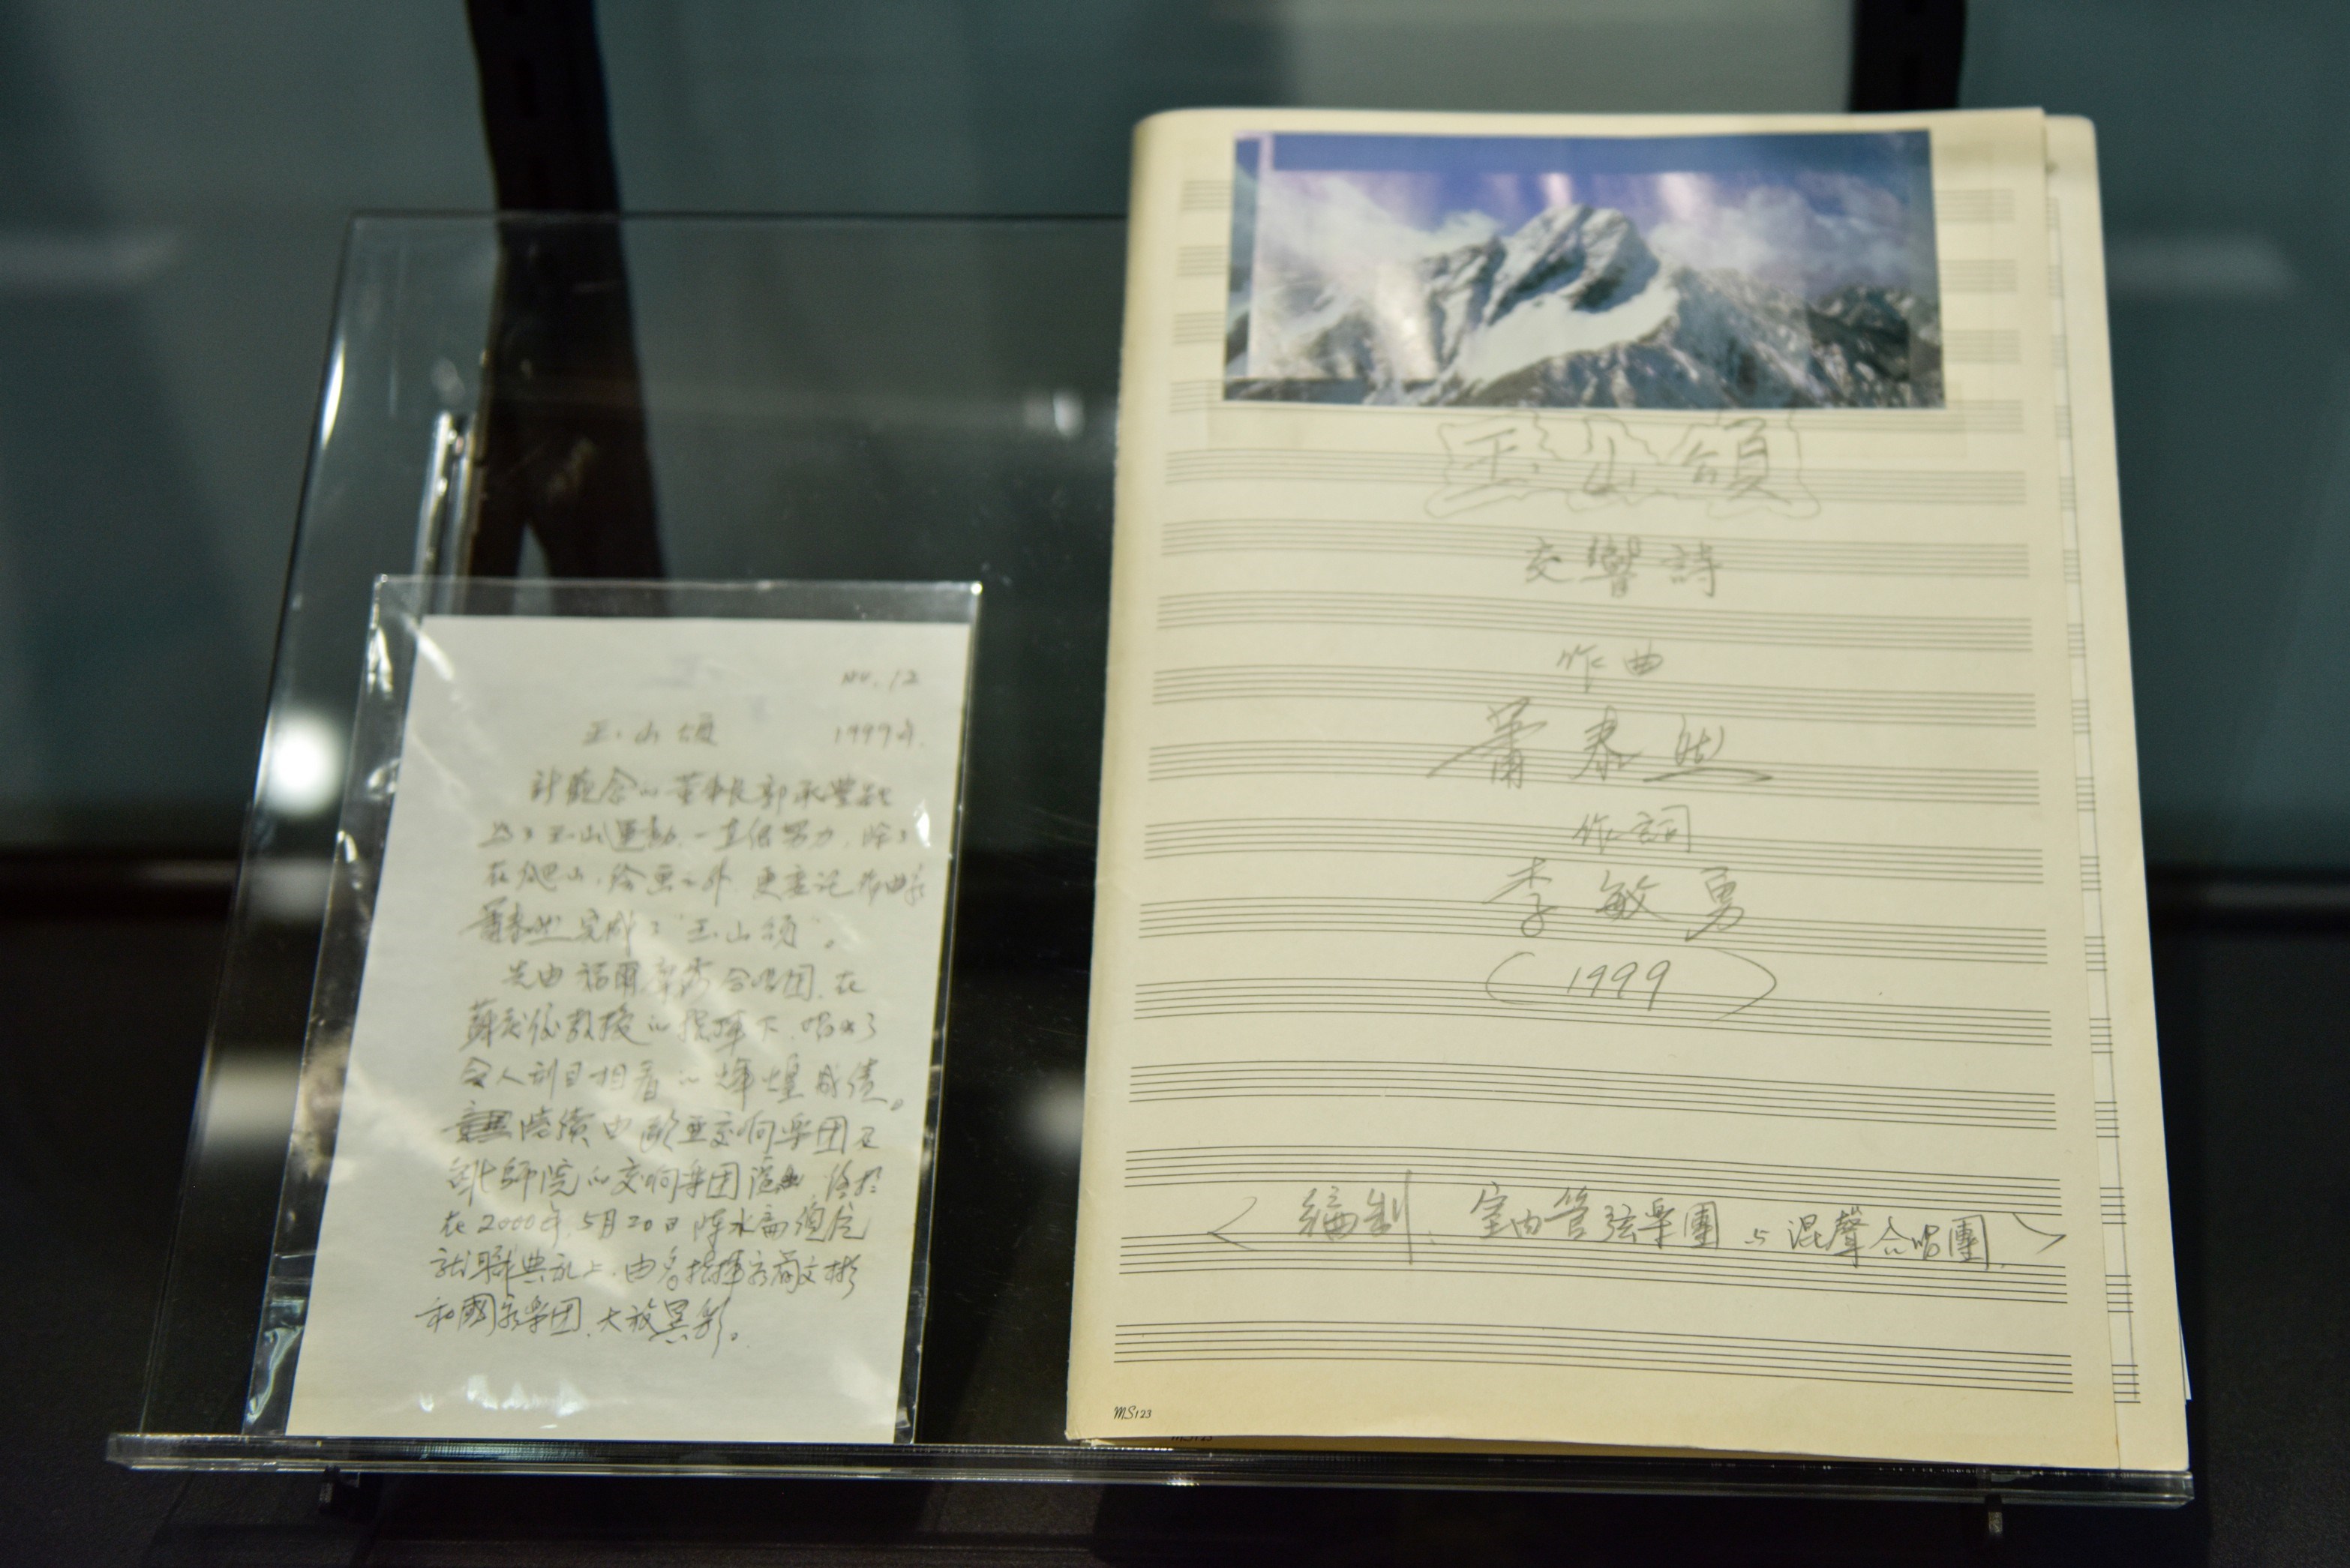 No. 12
玉山頌 1999年.
計觀念的董事長郭承豐
為了玉山運動,一直很努力,除了
在爬山,繪畫之外,更委託作曲家
蕭泰然完成了"玉山頌"。
先由福爾摩沙合唱団,在
蘇 教授的指揮下,唱出了
令人刮目相看的輝煌成績。
陸續由歐亜交响楽団及
師院的交响楽団演出,終於
在2000年,5月20日陳水扁總統
就職典礼上,由名指揮家簡文彬
和國家楽団,大放異彩。
玉山頌
交響詩
作曲
蕭泰然
作詞
李敏勇
(1999)
<編制、室內管弦楽團与混聲合唱團.>
MS123